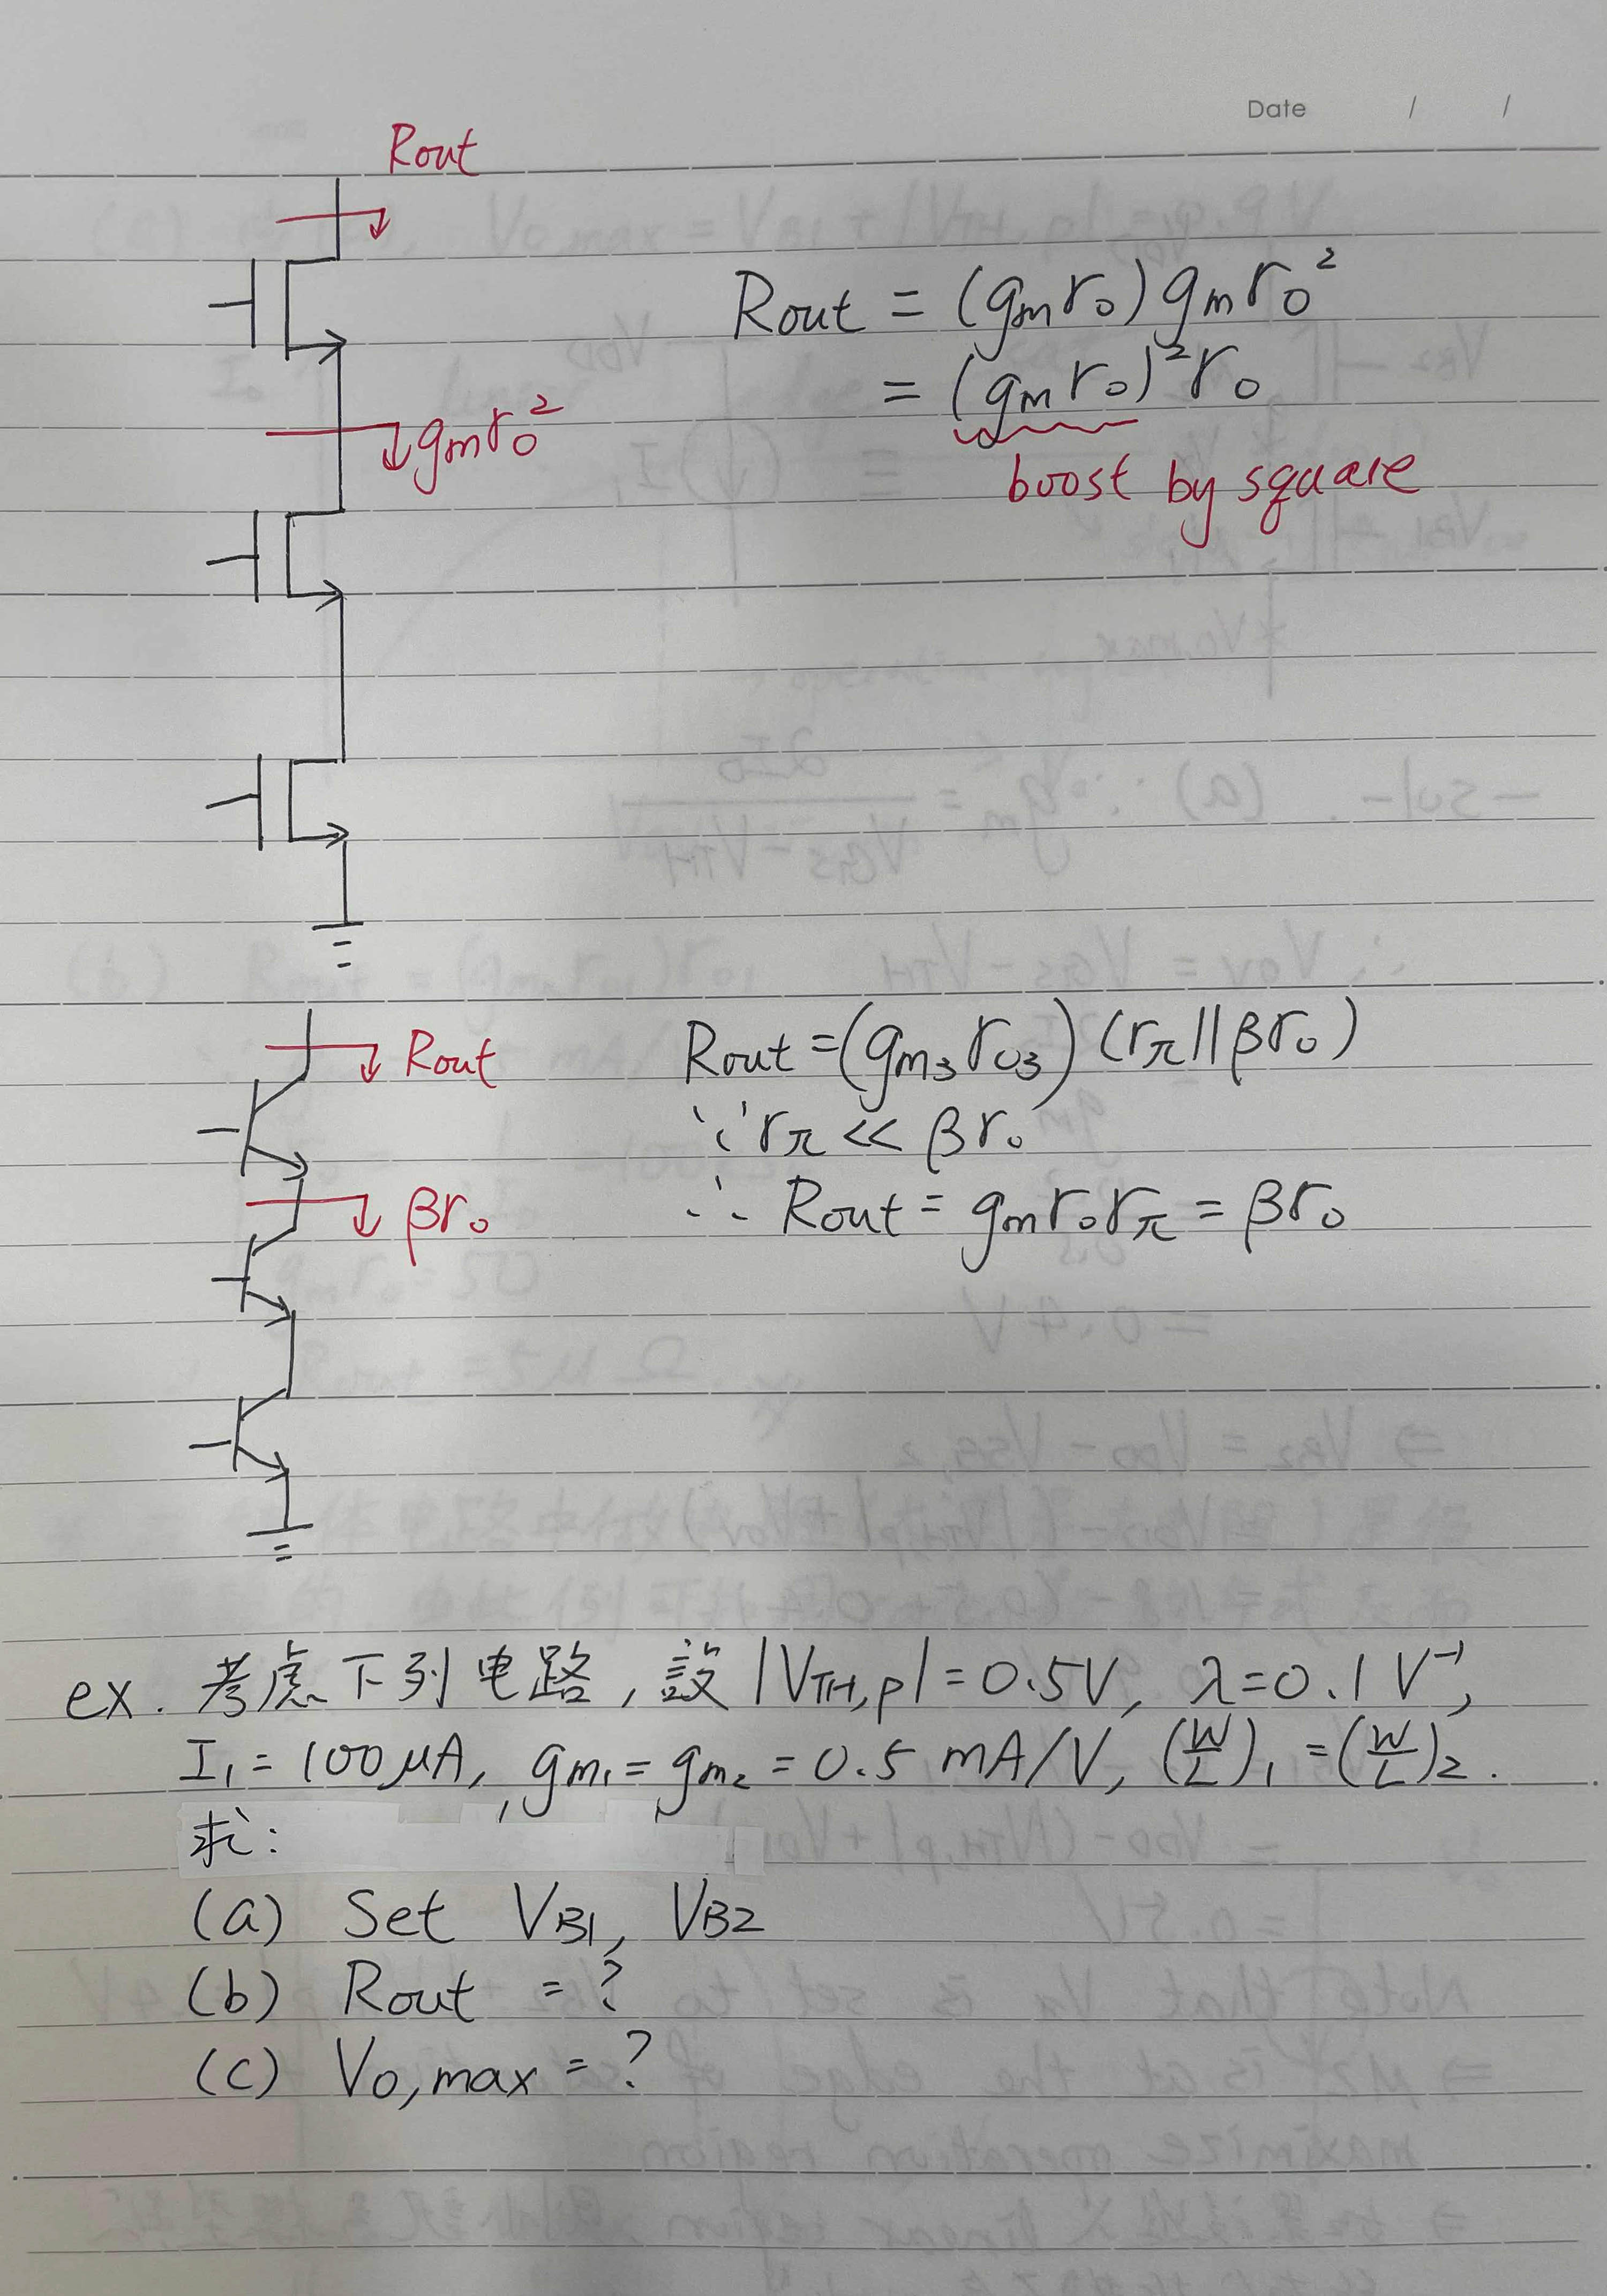 Date / /
Rout
Rout = (gmro)gmro²
= (gmro)²ro
gmro²
boost by square
Rout
Rout = (gm3ro3)(rπ||βro)
∵ rπ << βro
βro
∴ Rout = gmrorπ = βro
ex. 考虑下列电路,設|VTH,p|=0.5V, λ=0.1V⁻¹,
I₁=100μA, gm₁=gm₂=0.5 mA/V, (W/L)₁=(W/L)₂.
求:
(a) Set VB1, VB2
(b) Rout = ?
(c) Vo,max = ?